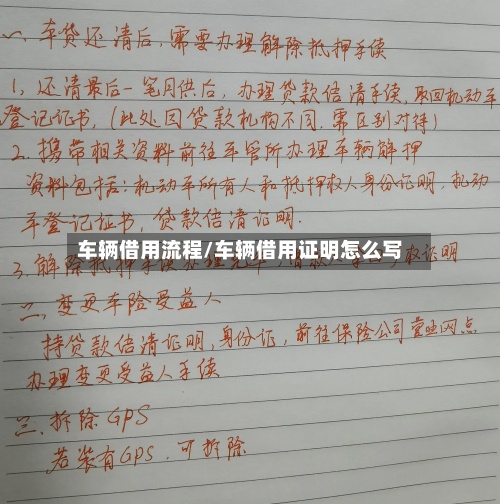 一、车贷还清后,需要办理解除抵押手续
1,还清最后一笔月供后,办理贷款结清手续,取回机动车
登记证书,(此处因贷款机构不同,需区别对待)
2.携带相关资料前往车管所办理车辆解押
资料包括:机动车所有人和抵押权人身份证明,机动
车登记证书,贷款结清证明.
车辆借用流程/车辆借用证明怎么写
3.解除抵押手续办理完毕,证明
二、变更车险受益人
持贷款结清证明,身份证,前往保险公司营业网点
办理变更受益人手续
三.拆除GPS
若装有GPS.可拆除